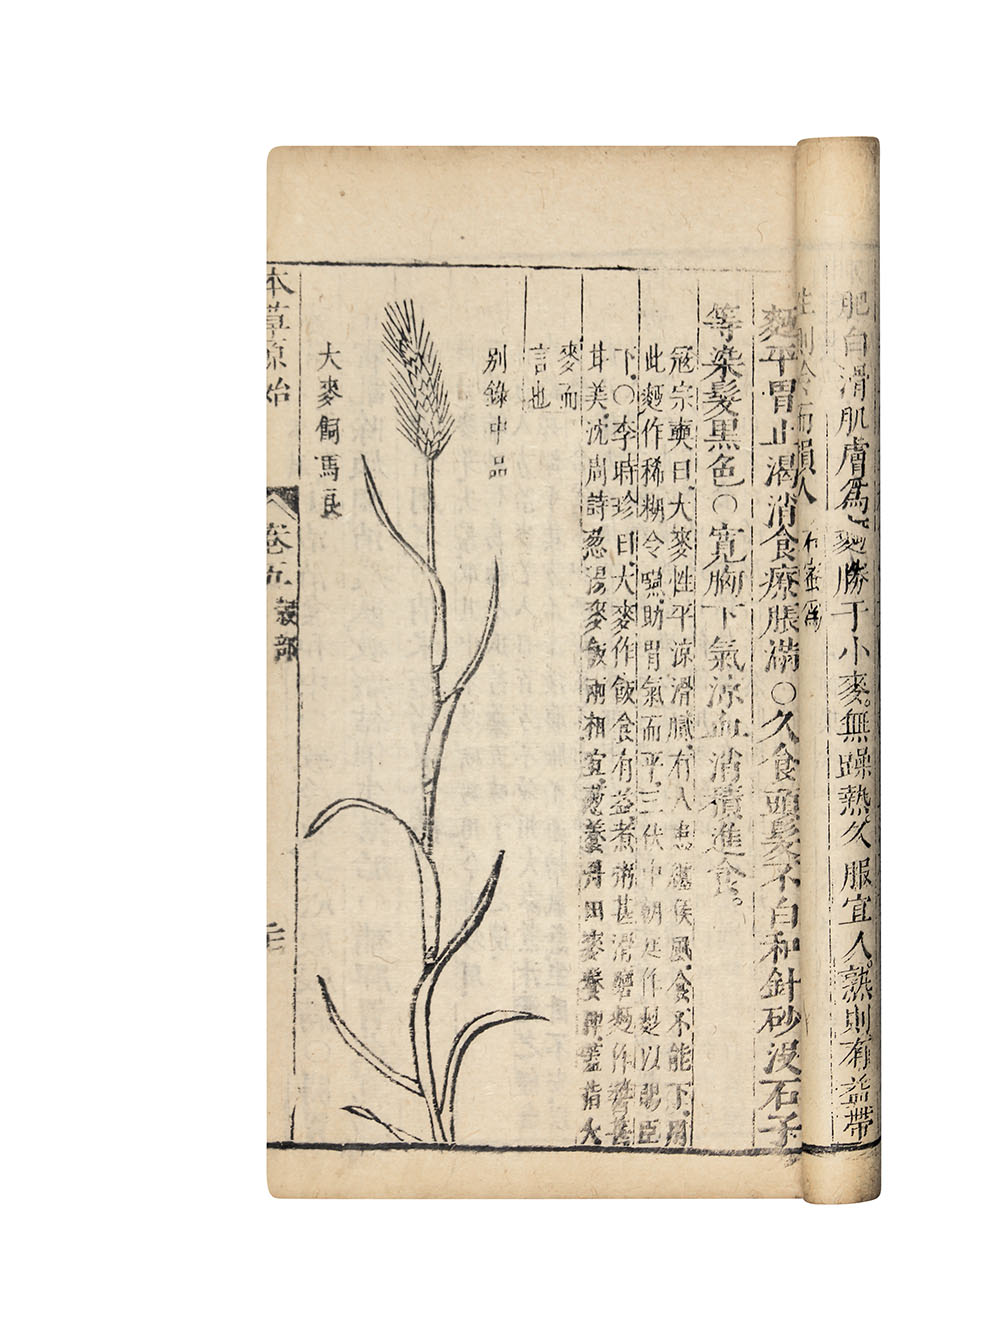 肥白滑肌膚爲麪勝于小麥無躁熱久服宜人熟則有益帶
生則冷而損人
麪平胃止渴消食療脹滿○久食頭髮不白和針砂没石子
等染髮黒色○寛胸下氣凉血消積進食
宼宗奭曰大麥性平凉滑膩有人患纏侯風食不能下用
此麪作稀糊令嚥助胃氣而平三伏中朝廷作麨以賜臣
下○李時珍曰大麥作飯食有益煮粥甚滑磨麪作醬甚
甘美沈周詩葱湯麥飯兩相宜葱養丹田麥養脾蓋指大
麥而
言也
别錄中品
大麥飼馬良
本草原始
卷五 榖部